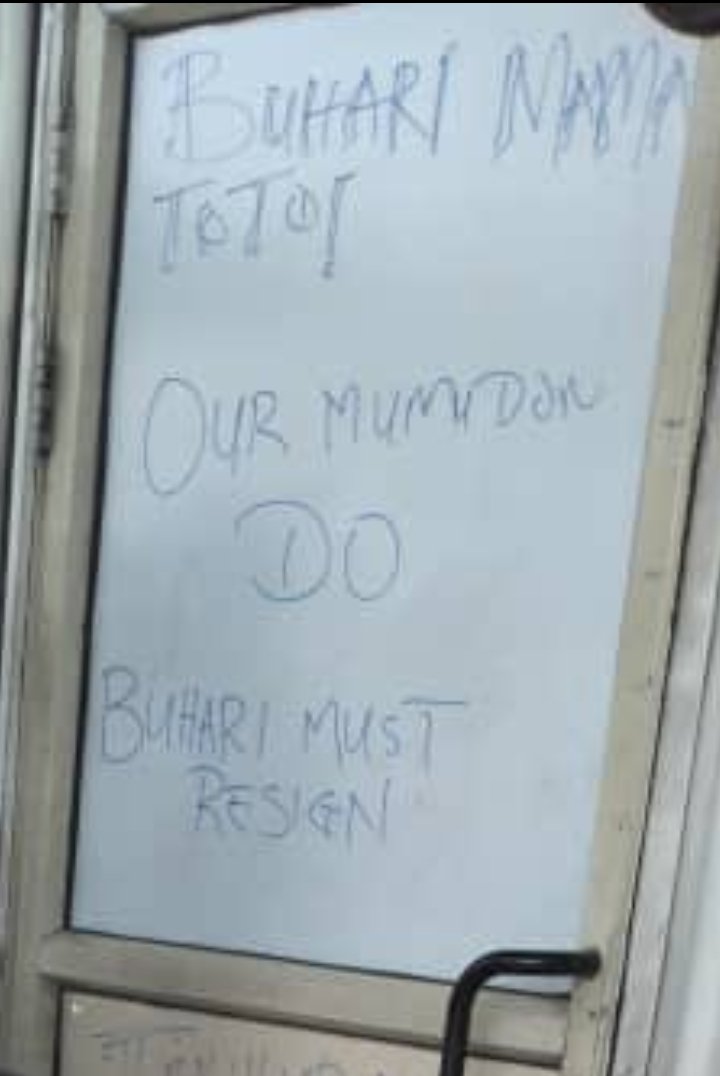 BUHARI MAMA
TOTO!
OUR MUMU DON
DO
BUHARI MUST
RESIGN